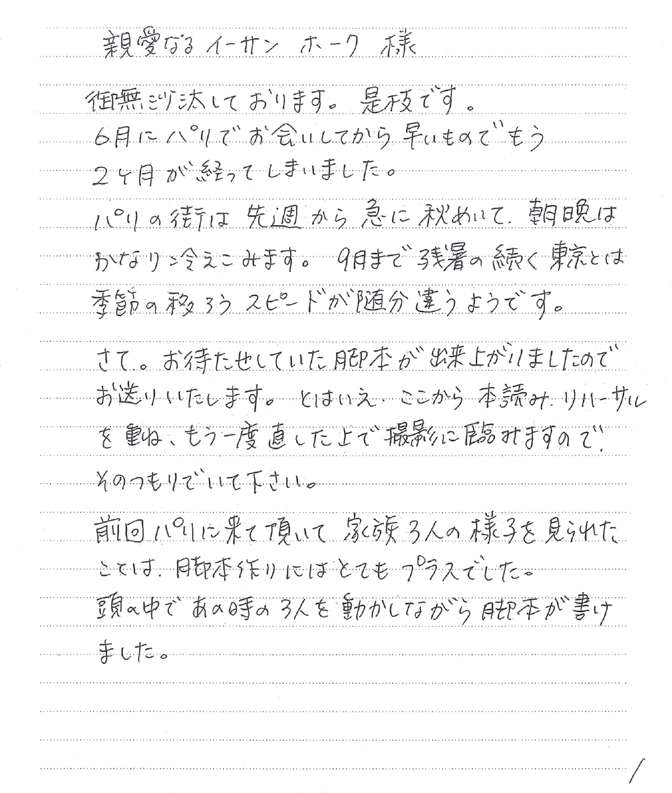 親愛なるイーサン ホーク 様
御無沙汰しております。是枝です。
6月にパリでお会いしてから早いものでもう
2ヶ月が経ってしまいました。
パリの街は先週から急に秋めいて、朝晩は
かなり冷えこみます。9月まで残暑の続く東京とは
季節の移ろうスピードが随分違うようです。
さて。お待たせしていた脚本が出来上がりましたので
お送りいたします。とはいえ、ここから本読み、リハーサル
を重ね、もう一度直した上で撮影に臨みますので、
そのつもりでいて下さい。
前回パリに来て頂いて家族3人の様子を見られた
ことは、脚本作りにはとてもプラスでした。
頭の中であの時の3人を動かしながら脚本が書け
ました。
1